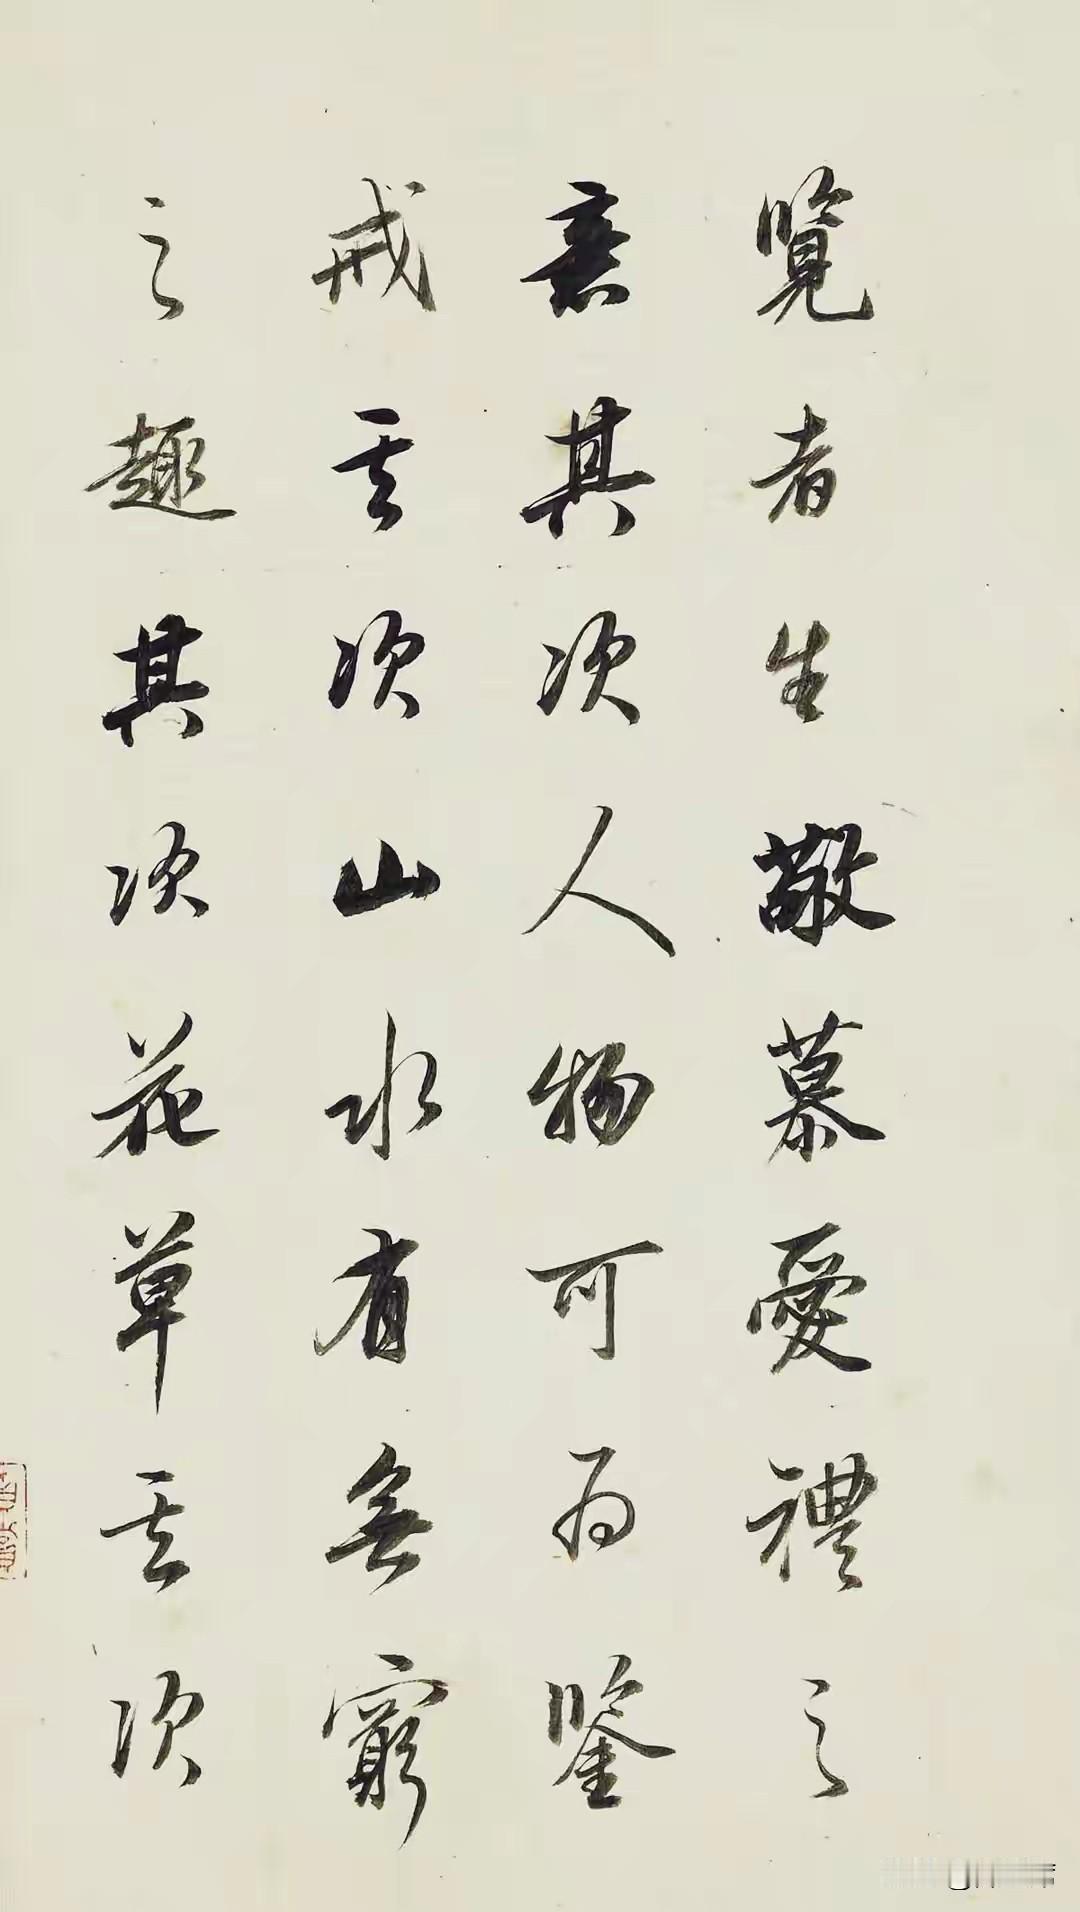 覧者生敬慕愛禮之
意其次人物可為鑒
戒其次山水有無窮
之趣其次花草其次